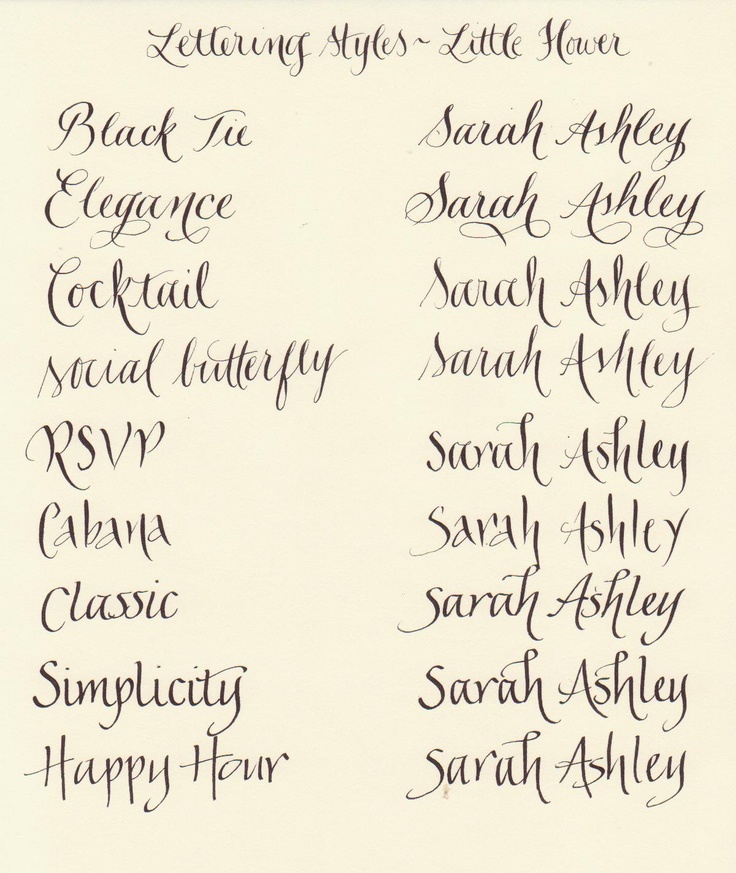 Lettering Styles ~ Little Flower
Black Tie Sarah Ashley
Elegance Sarah Ashley
Cocktail Sarah Ashley
social butterfly Sarah Ashley
RSVP Sarah Ashley
Cabana Sarah Ashley
Classic Sarah Ashley
Simplicity Sarah Ashley
Happy Hour Sarah Ashley